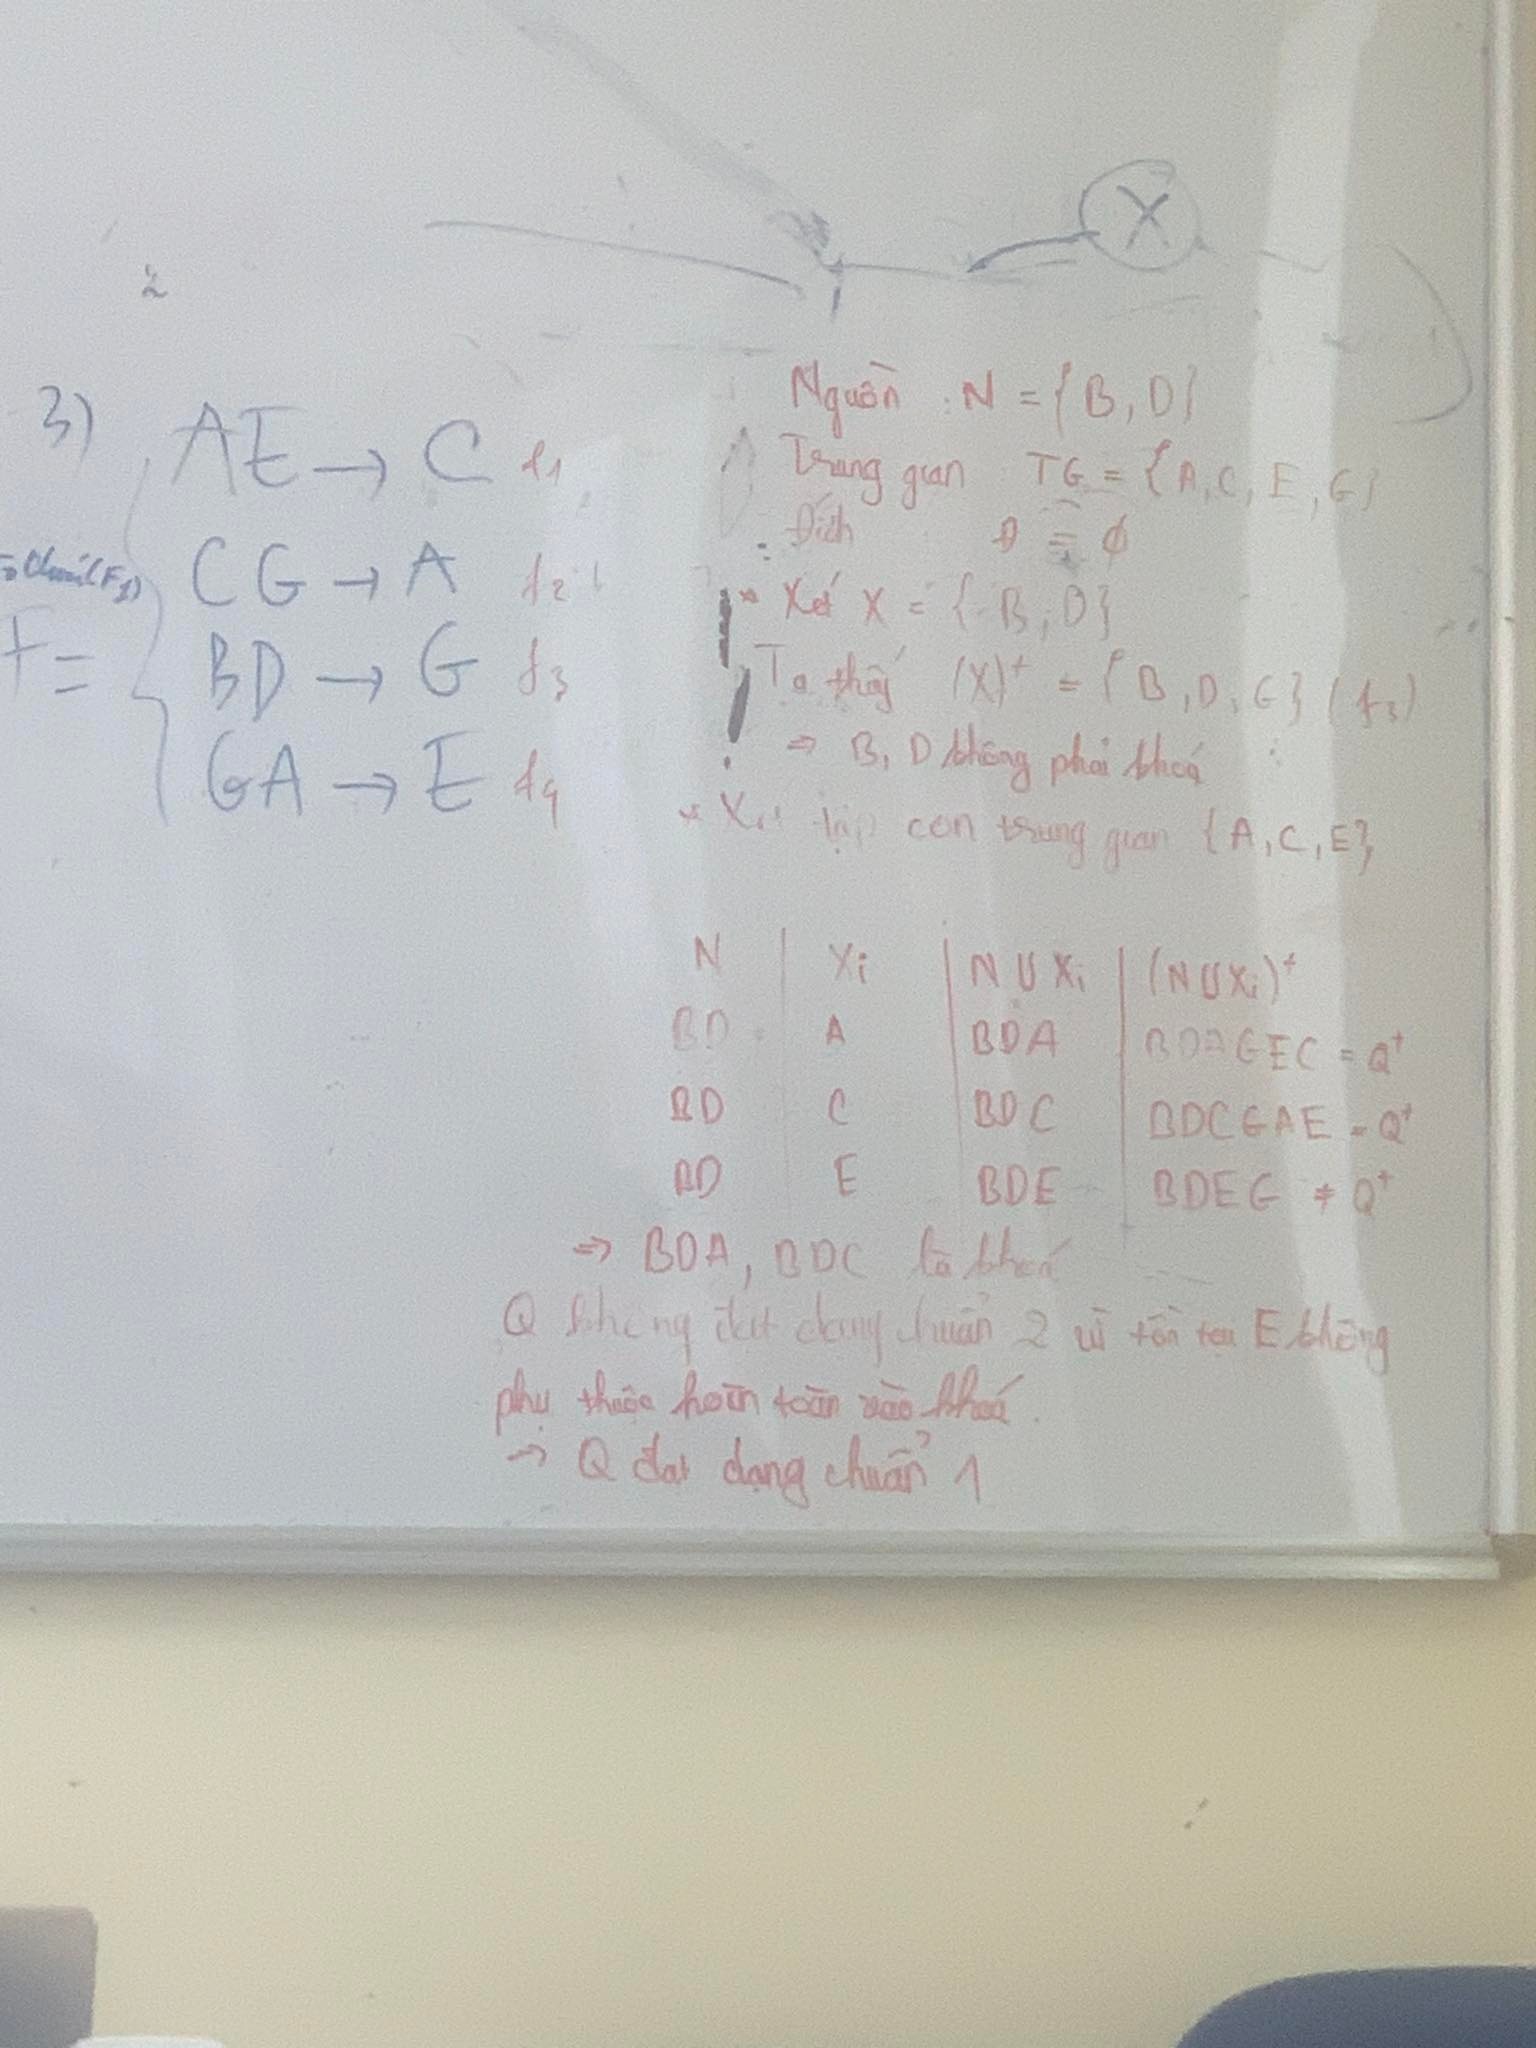 X
3)
AE → C f1
CG → A f2
BD → G f3
GA → E f4
F =
Nguồn : N = {B, D}
Trung gian TG = {A, C, E, G}
Đích Đ = ∅
* Xét X = {B, D}
Ta thấy (X)⁺ = {B, D, G} (f3)
⇒ B, D không phải khoá
* Xét tập con trung gian {A, C, E}
N | Xi | N U Xi | (N U Xi)⁺
BD A BDA BDAGEC = Q⁺
BD C BDC BDCGAE = Q⁺
BD E BDE BDEG ≠ Q⁺
⇒ BDA, BDC là khoá
Q không đạt dạng chuẩn 2 vì tồn tại E không
phụ thuộc hoàn toàn vào khoá.
→ Q đạt dạng chuẩn 1